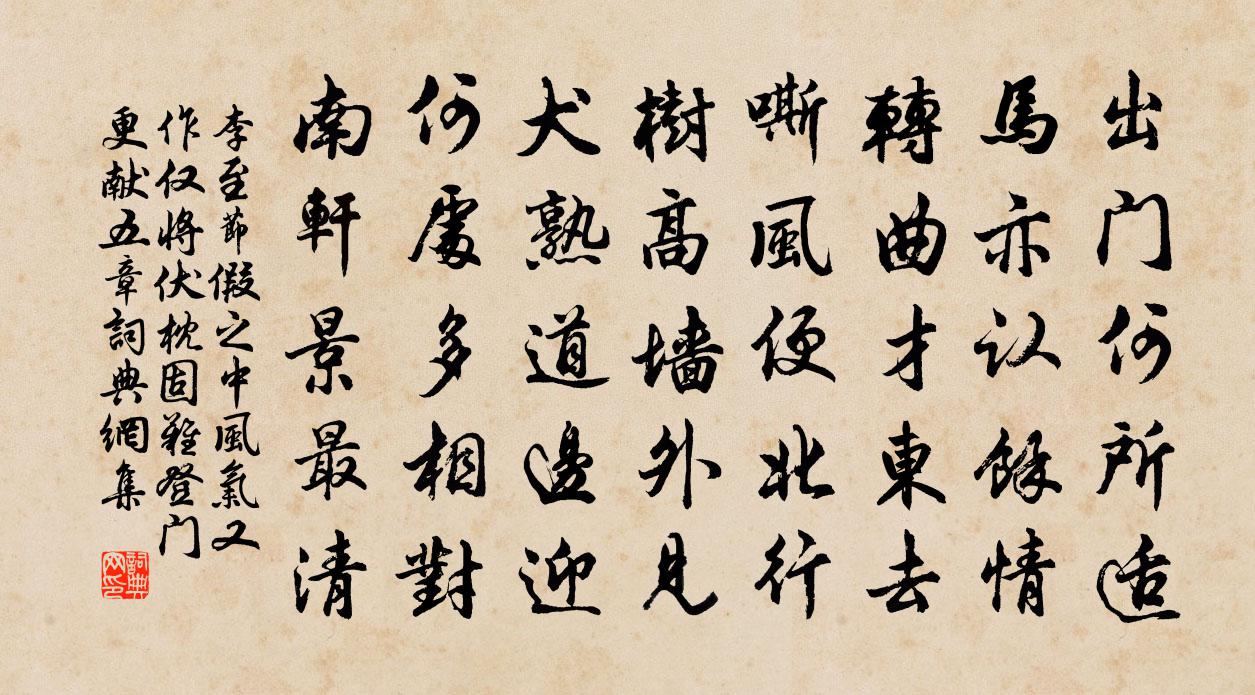 出门何所适
馬亦认餘情
轉曲才東去
嘶風便北行
樹高墙外見
犬熟道邊迎
何處多相對
南軒景最清
李至節假之中風氣又
作仅将伏枕固難登门
更献五章詞典網集
詞典网印